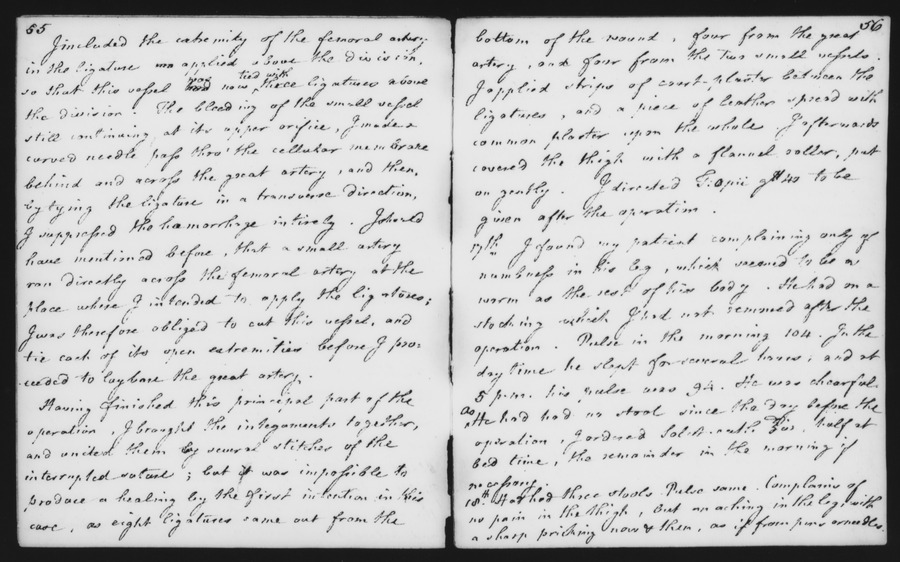 55
I included the extremity of the femoral artery
in the ligature applied above the division,
so that this vessel was now tied with three ligatures above
the division. The bleeding of the small vessel
still continuing at its upper orifice, I made a
curved needle pass thro' the cellular membrane
behind and across the great artery, and then,
by tying the ligature in a transverse direction,
I suppressed the hæmorrhage intirely. I should
have mentioned before, that a small artery
ran directly across the femoral artery at the
place where I intended to apply the ligatures;
I was therefore obliged to cut this vessel, and
tie each of its open extremities before I pro=
ceeded to lay bare the great artery.
Having finished this principal part of the
operation, I brought the integuments together,
and united them by several stitches of the
interrupted suture; but it was impossible to
produce a healing by the first intention in this
case, as eight ligatures came out from the
56
bottom of the wound, four from the great
artery, and four from the two small vessels.
I applied strips of court-plaster between the
ligatures, and a piece of leather spread with
common plaster upon the whole. I afterwards
covered the thigh with a flannel roller, put
on gently. I directed T: Opii gtt 40 to be
given after the operation.
17th I found my patient complaining only of
numbness in his leg, which seemed to be as
warm as the rest of his body. He had on a
stocking which I had not removed after the
operation. Pulse in the morning 104. In the
day time he slept for several hours; and at
5 p.m. his pulse was 94. He was chearful.
As He had had no stool since the day before the
operation, I ordered Sal: cath: half at
bed time, the remainder in the morning if
necessary.
18th. Has had three stools. Pulse same. Complains of
no pain in the thigh, but an aching in the leg with
a sharp pricking now & then, as if from pins or needles.